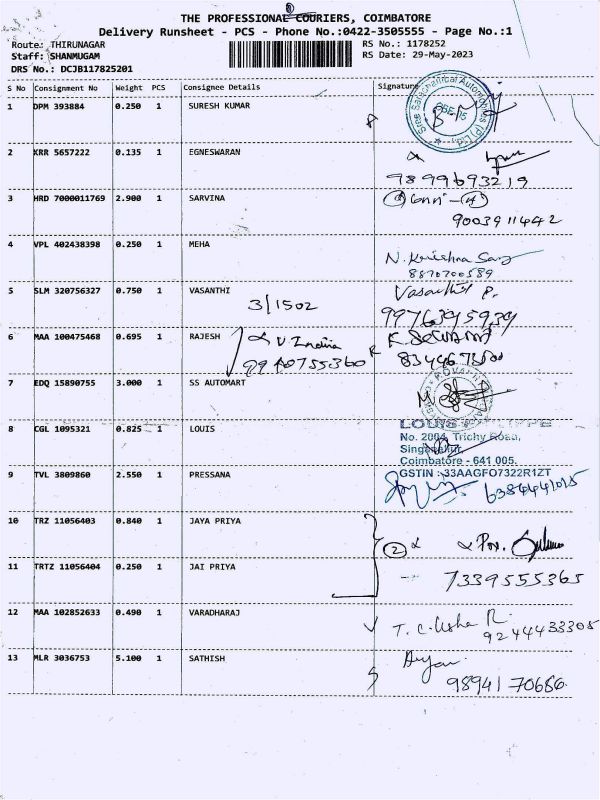 THE PROFESSIONAL COURIERS, COIMBATORE
Delivery Runsheet - PCS - Phone No.:0422-3505555 - Page No.:1
Route: THIRUNAGAR RS No.: 1178252
Staff: SHANMUGAM RS Date: 29-May-2023
DRS No.: DCJB117825201
S No Consignment No Weight PCS Consignee Details Signature
1 DPM 393884 0.250 1 SURESH KUMAR
2 KRR 5657222 0.135 1 EGNESWARAN
9899693219
3 HRD 7000011769 2.900 1 SARVINA
9003911442
4 VPL 402438398 0.250 1 MEHA
N. Krishna
8870700589
5 SLM 320756327 0.750 1 VASANTHI Vasanthi P.
3/1502 9976395939
6 MAA 100475468 0.695 1 RAJESH
9940755360
7 EDQ 15890755 3.000 1 SS AUTOMART
8 CGL 1095321 0.825 1 LOUIS
LOUIS PHILIPPE
No. 2004, Trichy Road,
Singanallur,
Coimbatore - 641 005.
GSTIN : 33AAGFO7322R1ZT
9 TVL 3809860 2.550 1 PRESSANA
6384441015
10 TRZ 11056403 0.840 1 JAYA PRIYA
2
11 TRTZ 11056404 0.250 1 JAI PRIYA
7339555365
12 MAA 102852633 0.490 1 VARADHARAJ
T. C. Usha R.
9244433305
13 MLR 3036753 5.100 1 SATHISH
9894170686